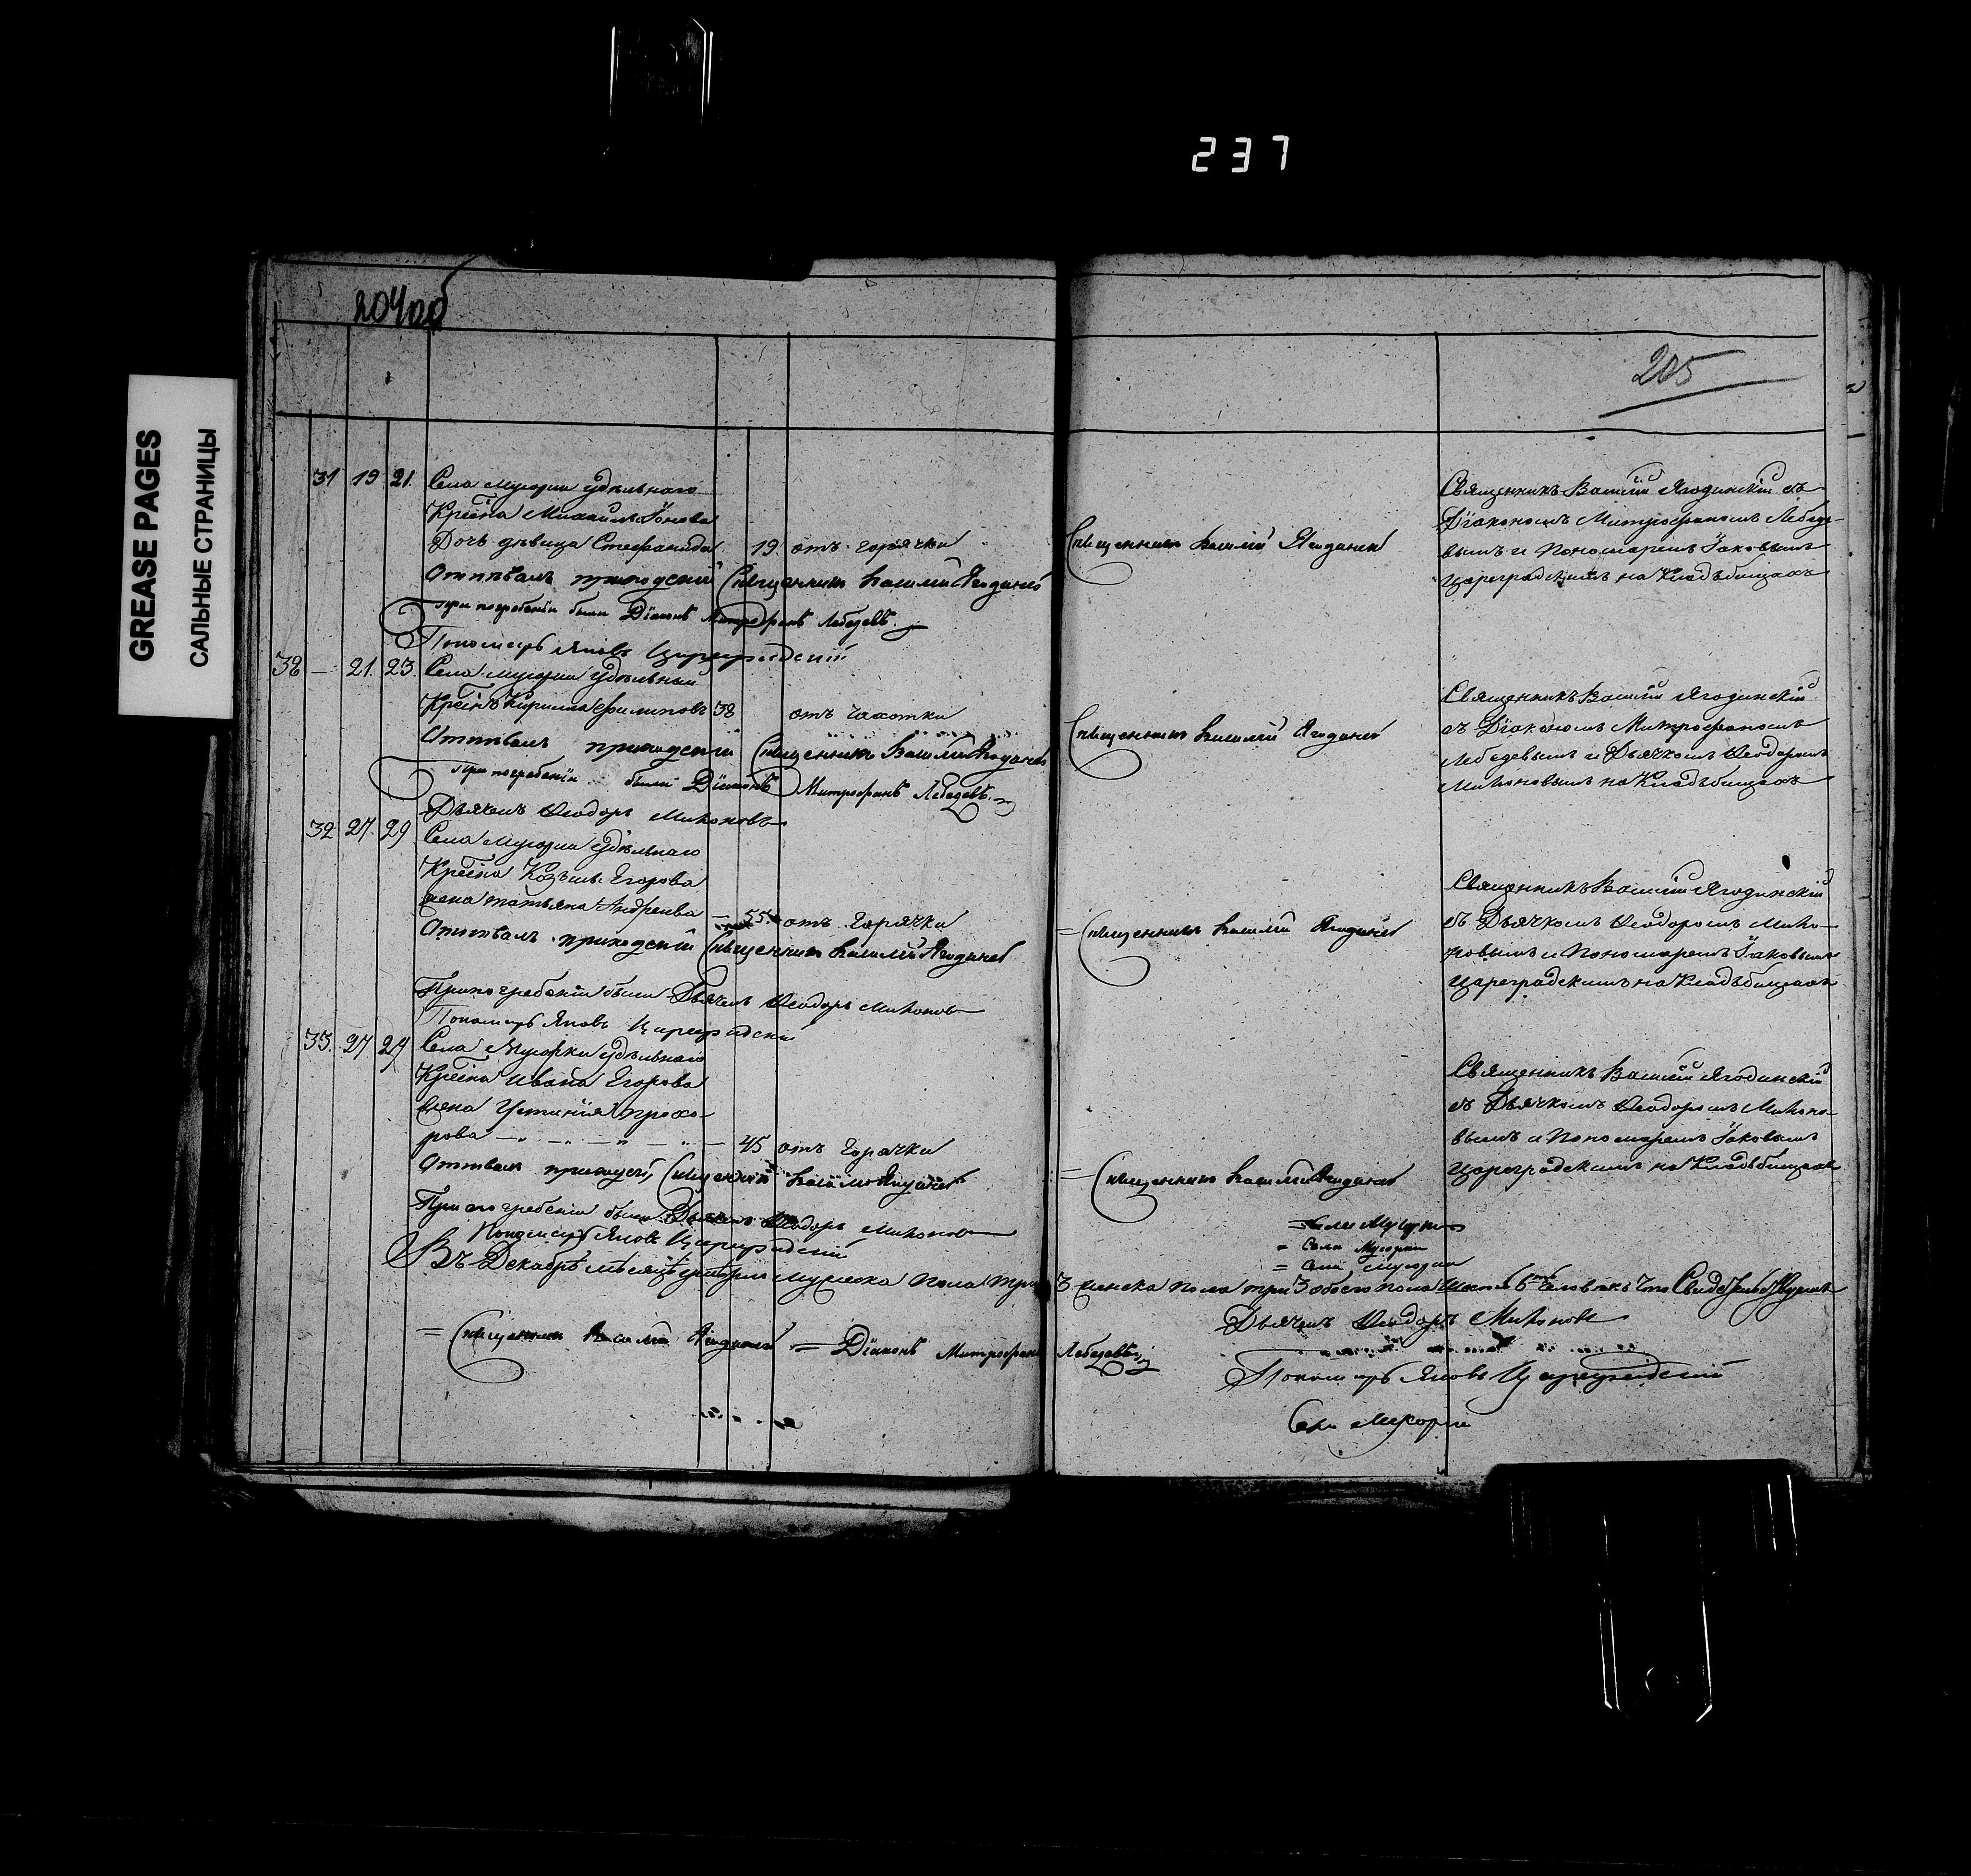 237
GREASE PAGES
САЛЬНЫЕ СТРАНИЦЫ
204об
205
31 19 21. Села Мусорки удѣльнаго
Крест҃іна Михаила Іонова
Дочь дѣвица Стефанида 19 отъ горячки
Отпѣвалъ приходскій Священникъ Василій Ягодинскій
При погребеніи были Діаконъ Митрофанъ Лебедевъ.
Пономарь Яковъ Цареградскій
Священникъ Василій Ягодинскій
Священникъ Василій Ягодинскій съ
Діакономъ Митрофаномъ Лебеде-
вымъ и Пономаремъ Іаковымъ
Цареградскимъ на Кладбищахъ
38 — 21. 23. Села Мусорки Удѣльный
Крест҃інъ Кирилла Филиповъ 38 отъ чахотки
Отпѣвалъ приходскій Священникъ Василій Ягодинскій
При погребеніи были Діаконъ Митрофанъ Лебедевъ.
Дьячекъ Ѳеодоръ Милоновъ
Священникъ Василій Ягодинскій
Священникъ Василій Ягодинскій
съ Діакономъ Митрофаномъ
Лебедевымъ и Дьячкомъ Ѳеодоромъ
Милоновымъ на Кладбищахъ
32 27. 29 Села Мусорки Удѣльнаго
Крест҃іна Козьмы Егорова
жена Татьяна Андреева — 55 отъ горячки
Отпѣвалъ приходскій Священникъ Василій Ягодинскій
При погребеніи были Дьячекъ Ѳеодоръ Милоновъ
Пономарь Яковъ Цареградскій
= Священникъ Василій Ягодинскій
Священникъ Василій Ягодинскій
съ Дьячкомъ Ѳеодоромъ Мило-
новымъ и Пономаремъ Іаковымъ
Цареградскимъ на Кладбищахъ
33. 27 29 Села Мусорки Удѣльнаго
Крест҃іна Ивана Егорова
жена Устинія Прохо-
рова — 45 отъ Горячки
Отпѣвалъ приходскій Священникъ Василій Ягодинскій
При погребеніи были Дьячекъ Ѳеодоръ Милоновъ
Пономарь Яковъ Цареградскій
= Священникъ Василій Ягодинскій
Священникъ Василій Ягодинскій
съ Дьячкомъ Ѳеодоромъ Милоно-
вымъ и Пономаремъ Іаковымъ
Цареградскимъ на Кладбищахъ
= Села Мусорки
= Села Мусорки
= Села Мусорки
Въ Декабрѣ мѣсяцѣ умерло Мужеска пола три 3 женска пола три 3 обоего пола шесть 6 человѣкъ что Свидѣтельствуемъ
= Священникъ Василій Ягодинскій = Діаконъ Митрофанъ Лебедевъ,
Дьячекъ Ѳеодоръ Милоновъ
Пономарь Яковъ Цареградскій
Села Мусорки